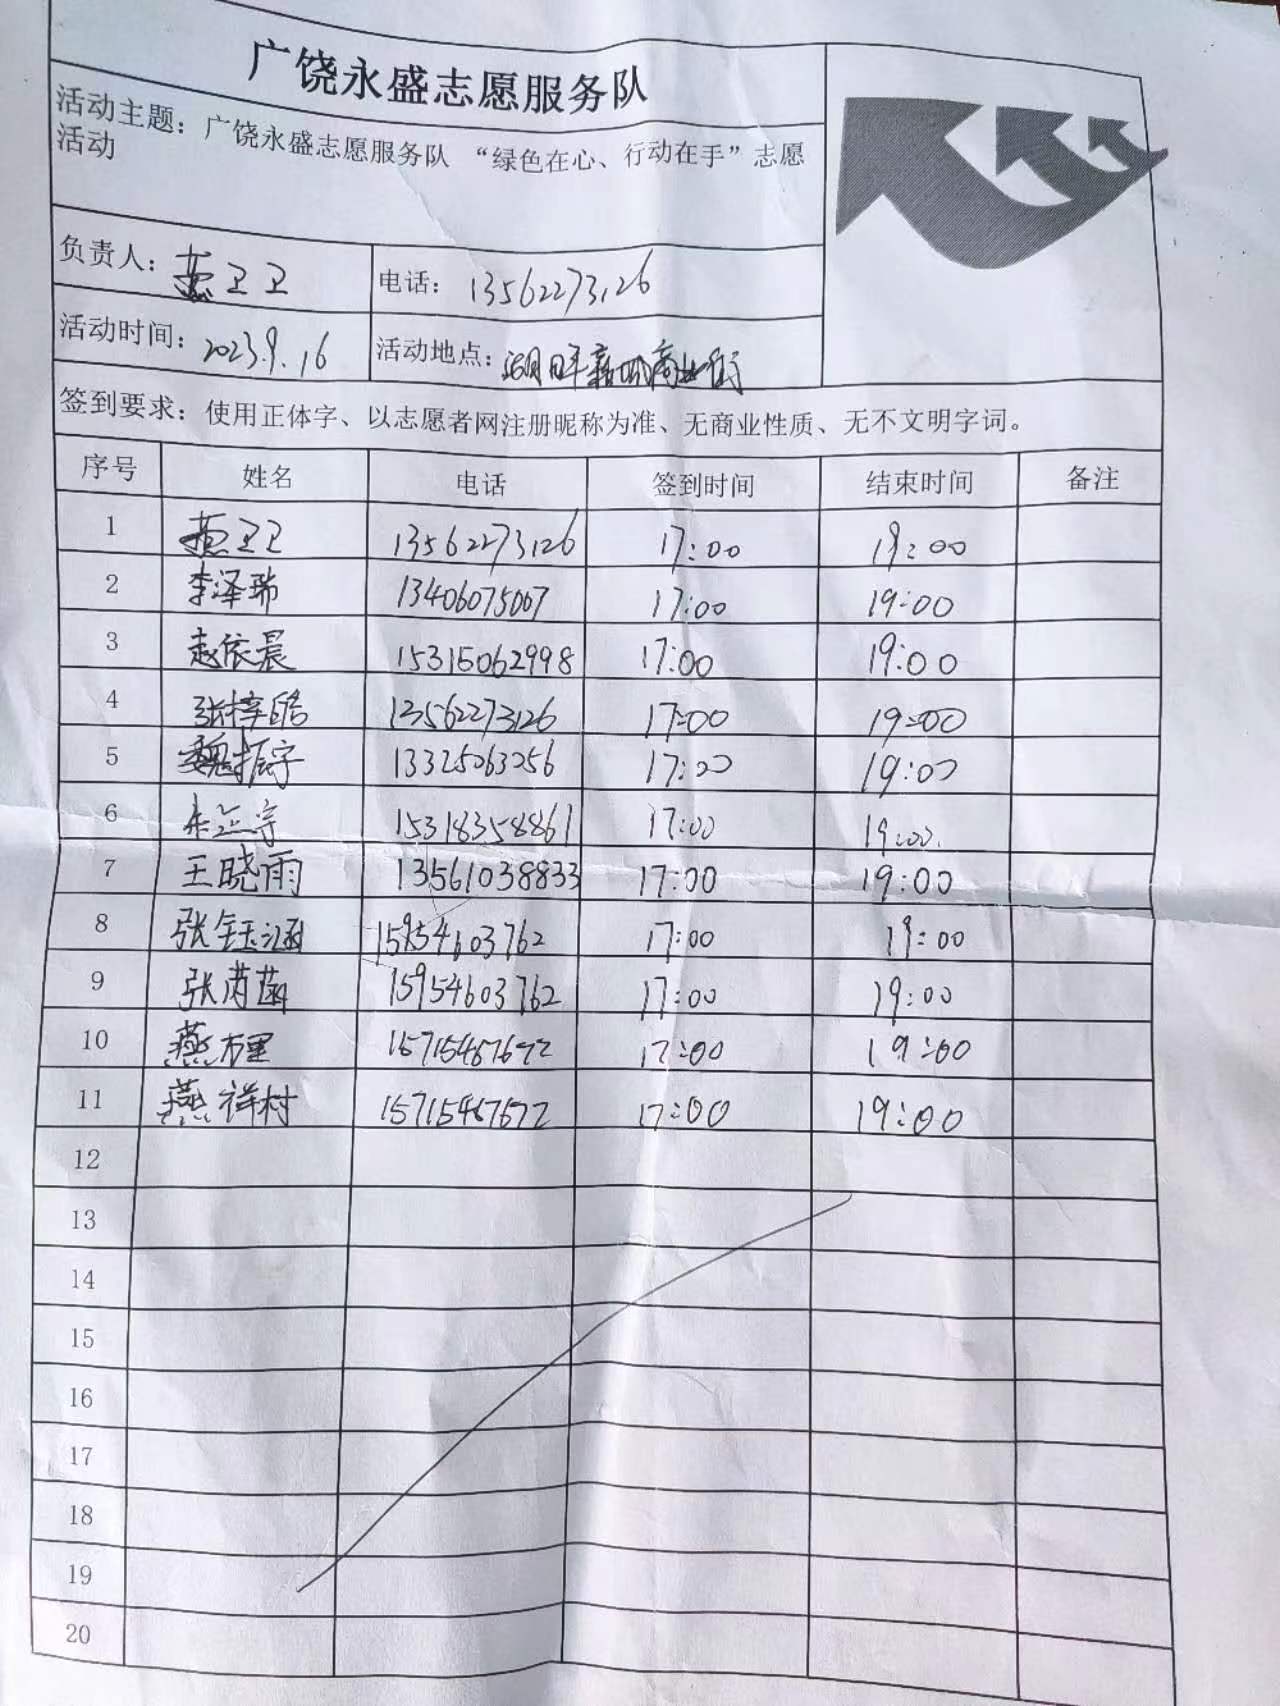 广饶永盛志愿服务队
活动主题：广饶永盛志愿服务队 “绿色在心、行动在手”志愿
活动
负责人：燕卫卫 电话：13562273126
活动时间：2023.9.16 活动地点：商业街
签到要求：使用正体字、以志愿者网注册昵称为准、无商业性质、无不文明字词。
序号 姓名 电话 签到时间 结束时间 备注
1 燕卫卫 13562273126 17:00 19:00
2 李泽瑞 13406075007 17:00 19:00
3 赵依晨 15315062998 17:00 19:00
4 张梓皓 13562273126 17:00 19:00
5 魏振宇 13325063256 17:00 19:00
6 15318358861 17:00 19:00
7 王晓雨 13561038833 17:00 19:00
8 张钰涵 15954603762 17:00 19:00
9 张芮菡 15954603762 17:00 19:00
10 燕 17:00 19:00
11 燕祥村 17:00 19:00
12
13
14
15
16
17
18
19
20